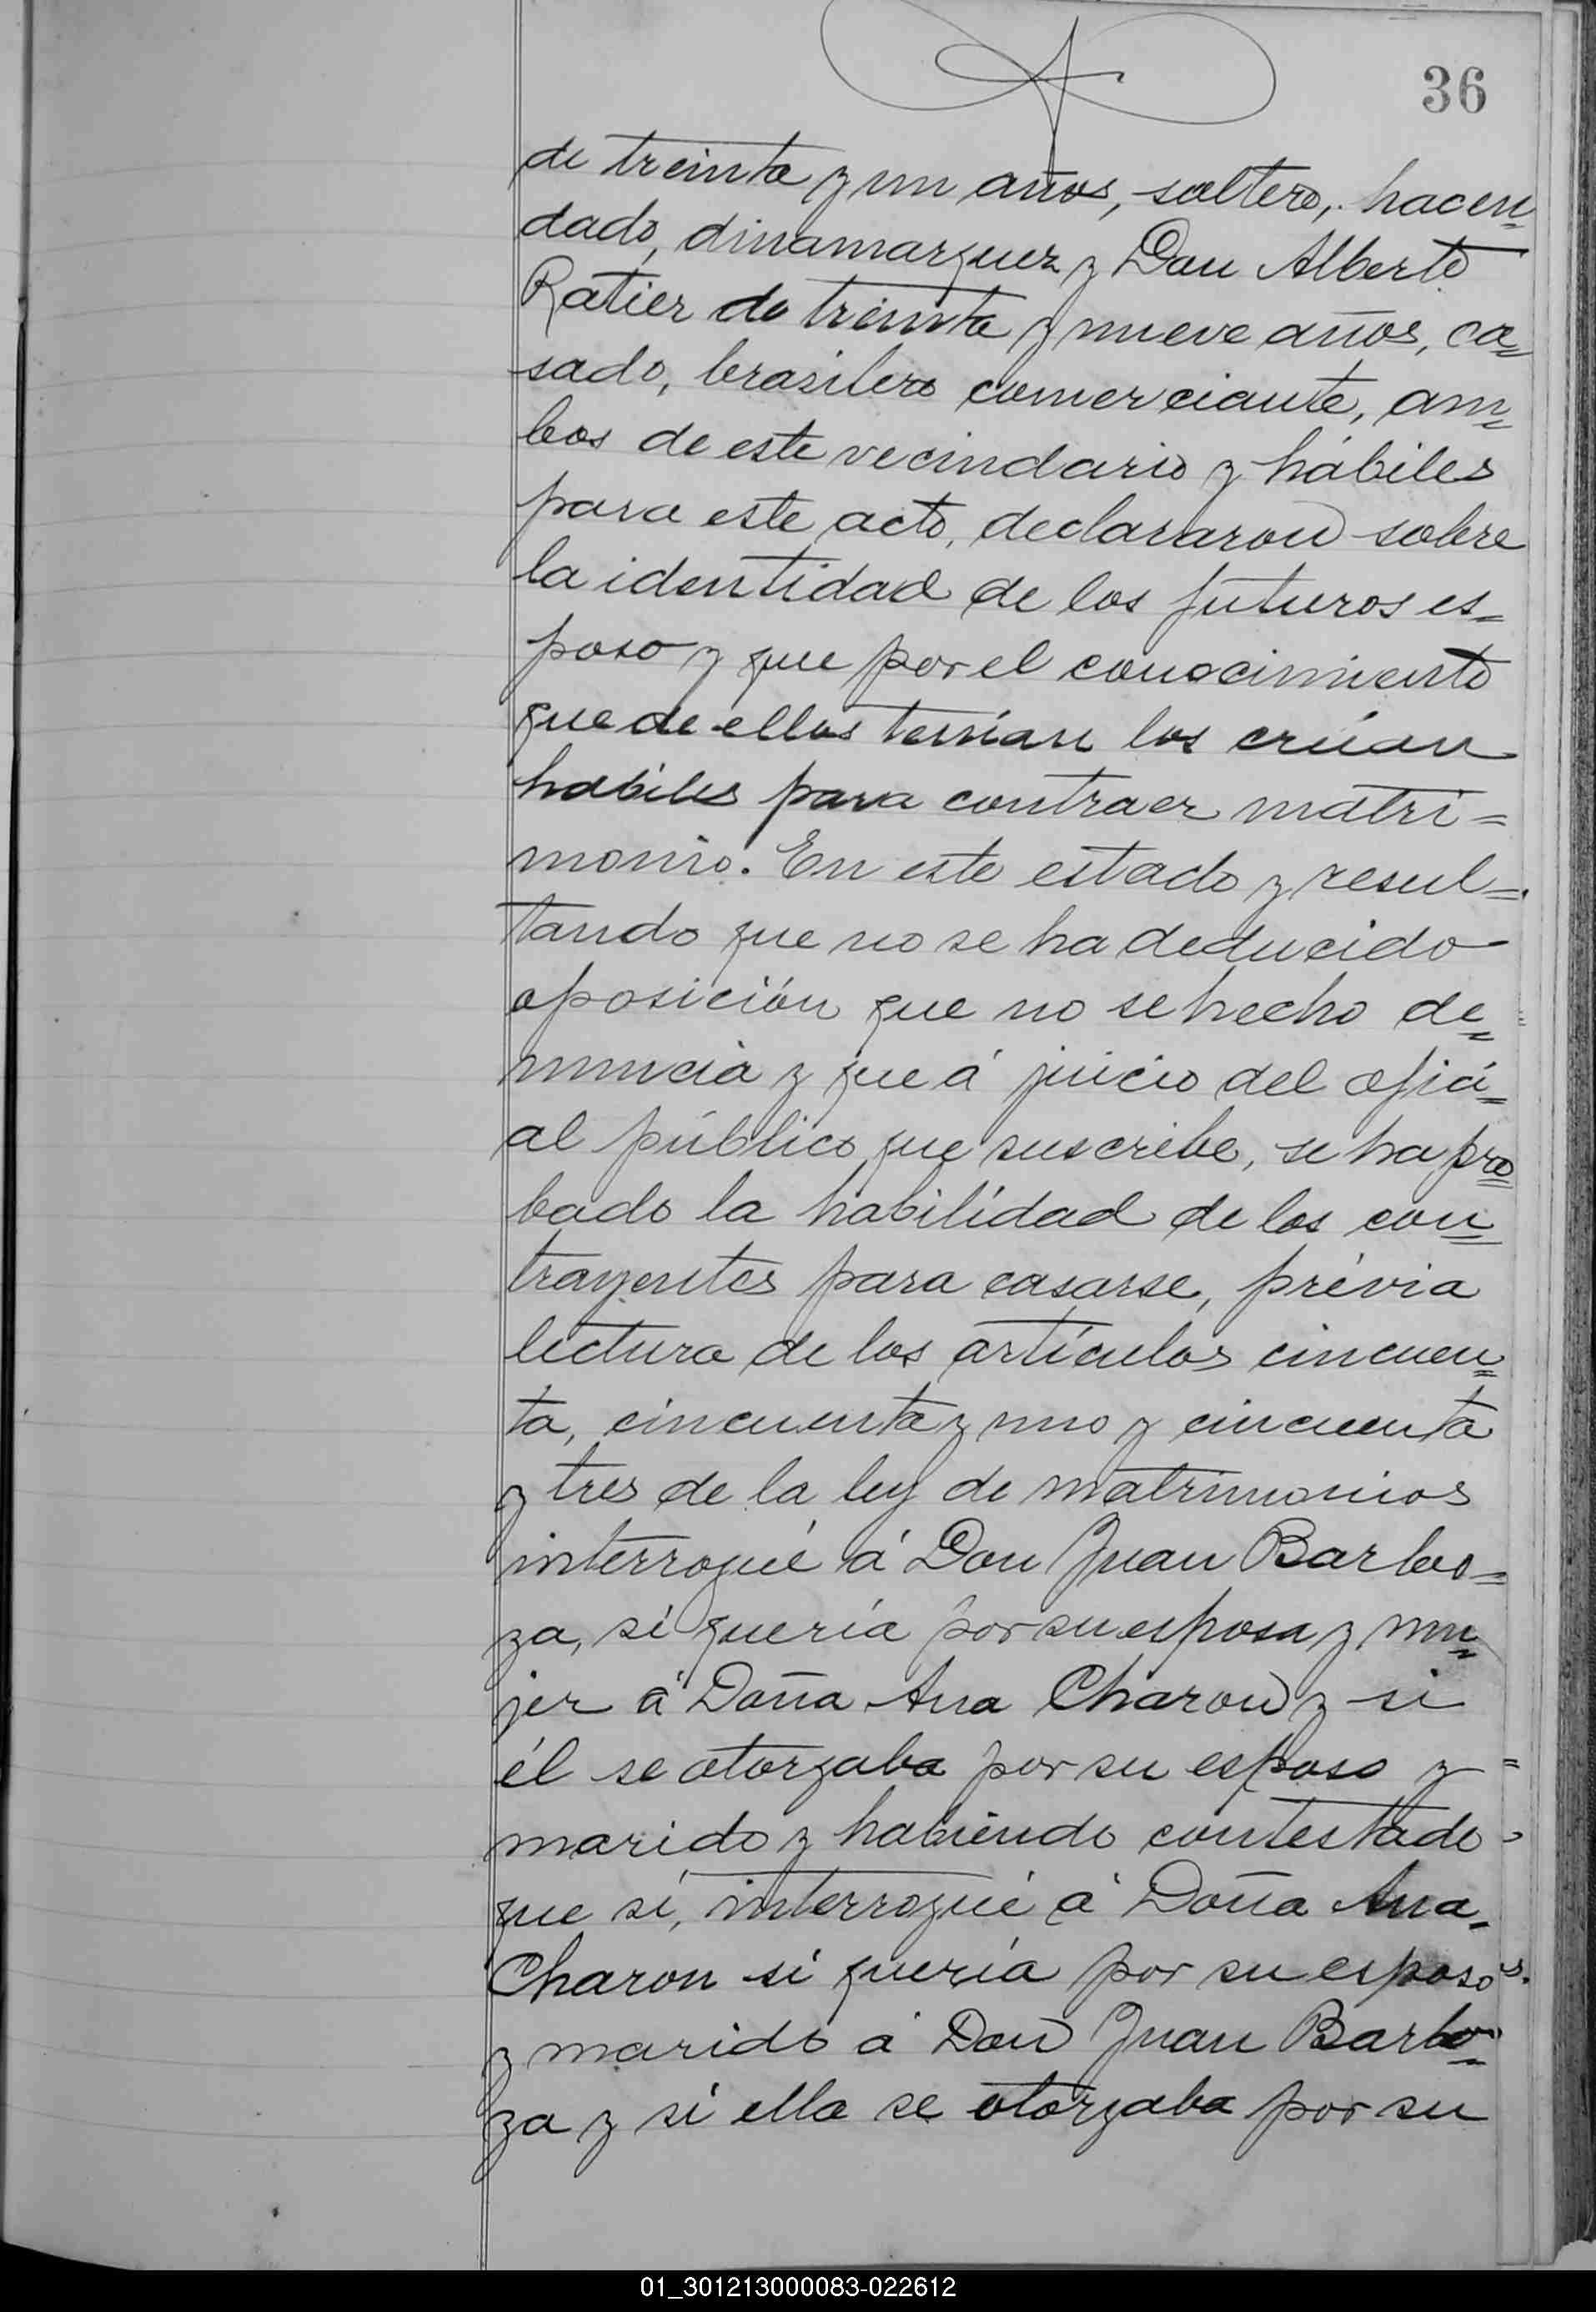 36
de treinta y un años, soltero, hacen=
dado, dinamarquez y Don Alberto
Ratier de treinta y nueve años, ca=
sado, brasilero comerciante, am=
bos de este vecindario y hábiles
para este acto, declararon sobre
la identidad de los futuros es=
poso y que por el conocimiento
que de ellos tenían los crúan
habiles para contraer matri=
monio. En este estado y resul=
tando que no se ha deducido
oposición que no se hecho de=
nuncia y que á juicio del ofici=
al público que suscribe, se ha pro
bado la habilidad de los con=
trayentes para casarse, prévia
lectura de los artículos cincuen=
ta, cincuenta y uno y cincuenta
y tres de la ley de matrimonios
interrogué á Don Juan Barbo=
za, si quería por su esposa y mu=
jer á Doña Ana Charon y si
él se otorgaba por su esposo y
marido y habiendo contestado
que sí, interrogué á Doña Ana
Charon si quería por su esposo
y marido á Don Juan Barbo=
za y si ella se otorgaba por su
01_301213000083-022612